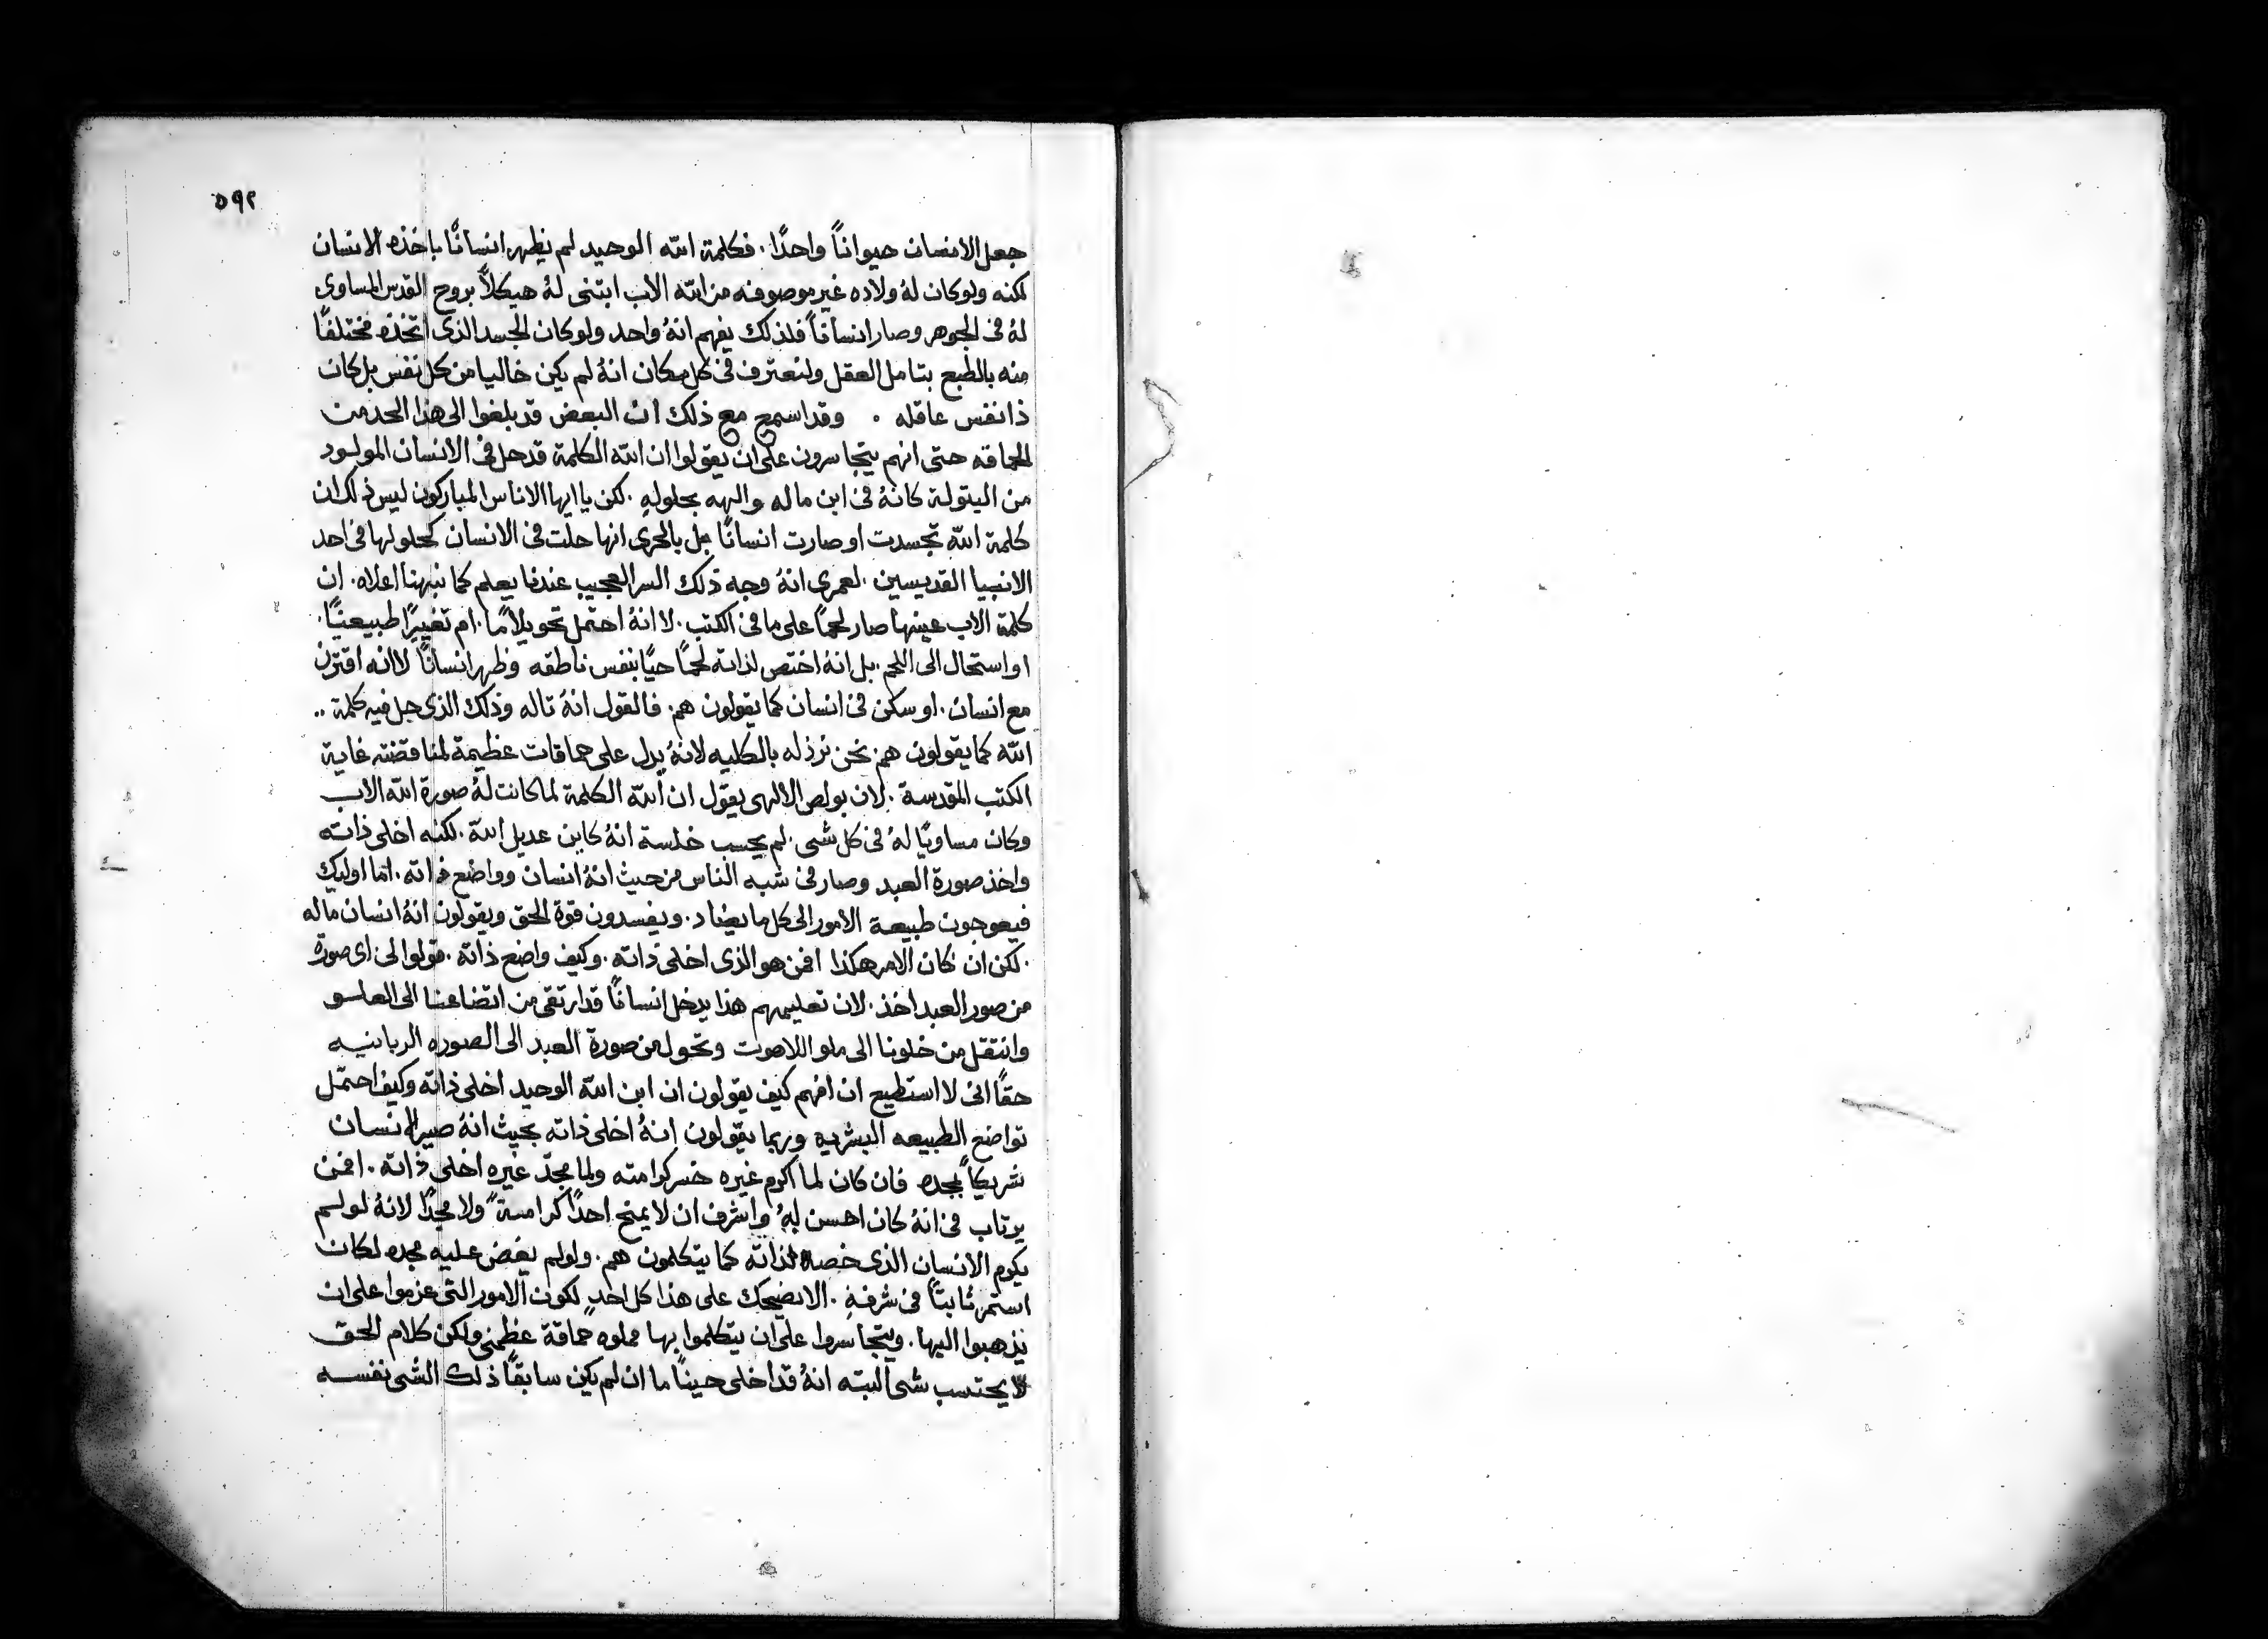 ٥٩٢
جعل الانسان حيواناً واحدًا. فكلمة الله الوحيد لم يظهر انسانًا باخذه الانسان
لكنه ولو كان لهُ ولاده غير موصوفه من الله الاب ابتنى لهُ هيكلاً بروح القدس المساوى
لهُ فى الجوهر وصار انساناً فلذلك يفهم انهُ واحد ولو كان الجسد الذى اتخذه مختلفًا
منه بالطبع بتامل العقل ولنعترف فى كل مكان انهُ لم يكن خاليا من كل نفس بل كان
ذا نفس عاقله . وقد اسمع مع ذلك ان البعض قد بلغوا الى هذا الحد من
الحماقه حتى انهم يتجاسرون على ان يقولوا ان الله الكلمة قد حل فى الانسان المولود
من البتولة كانهُ فى ابن ماله والهه بحلولهِ. لكن يا ايها الاناس المباركون ليس ذلك ان
كلمة الله تجسدت او صارت انسانًا بل بالحرى انها حلت فى الانسان كحلولها فى احد
الانبيا القديسين. لعمرى انهُ وجه ذلك السر العجيب عندنا يعلم كما نبهنا اعلاه. ان
كلمة الاب عينها صار لحمًا على ما فى الكتب. لا انهُ احتمل تحويلاً ما. ام تغييرًا طبيعيًا.
او استحال الى اللحم. بل انهُ اختص لذاته لحمًا حيًا بنفس ناطقه وظهر انسانًا لا انه اقترن
مع انسان. او سكن فى انسان كما يقولون هم. فالقول انهُ تاله وذلك الذى حل فيه كلمة ..
الله كما يقولون هم نحن نرذله بالكليه لانهُ يدل على حماقات عظيمة لمناقضته غاية
الكتب المقدسة. لان بولص الالهى يقول ان الله الكلمة لما كانت لهُ صورة الله الاب
وكان مساويًا لهُ فى كل شى. لم يحسب خلسة انهُ كاين عديل الله. لكنه اخلى ذاته
واخذ صورة العبد وصار فى شبه الناس من حيث انهُ انسان وواضع ذاته. اما اوليك
فيعوجون طبيعة الامور الى كل ما يضاد. ويفسدون قوة الحق ويقولون انهُ انسان ماله
. لكن ان كان الامر هكذا افمن هو الذى اخلى ذاته. وكيف واضع ذاته. قولوا لى اى صورة
من صور العبد اخذ. لان تعليمهم هذا يدخل انسانًا قد ارتقى من اتضاعنا الى العلسو
وانتقل من خلونا الى ملو اللاهوت وتحول من صورة العبد الى الصوره الربانيه
حقًا انى لا استطيع ان افهم كيف يقولون ان ابن الله الوحيد اخلى ذاته وكيف احتمل
تواضع الطبيعه البشريه وربما يقولون انهُ اخلى ذاته بحيث انهُ صير الانسان
شريكاً بمجده فان كان لما اكرم غيره خسر كرامته ولما مجدّ غيره اخلى ذاته. افمن
يرتاب فى انهُ كان احسن لهُ واشرف ان لا يمنح احدًا كرامةً ولا مجدًا لانهُ لو لم
يكرم الانسان الذى خصه لذاته كما يتكلمون هم. ولو لم يفض عليه مجده لكان
استمر ثابتاً فى شرفهِ. الا يضحك على هذا كل احدٍ لكون الامور التى عزموا على ان
يذهبوا اليها. ويتجاسروا على ان يتكلموا بها مملوه حماقة عظمى ولكن كلام الحق
لا يحتسب شى البته انهُ قد اخلى حينًا ما ان لم يكن سابقًا ذلك الشى نفسه